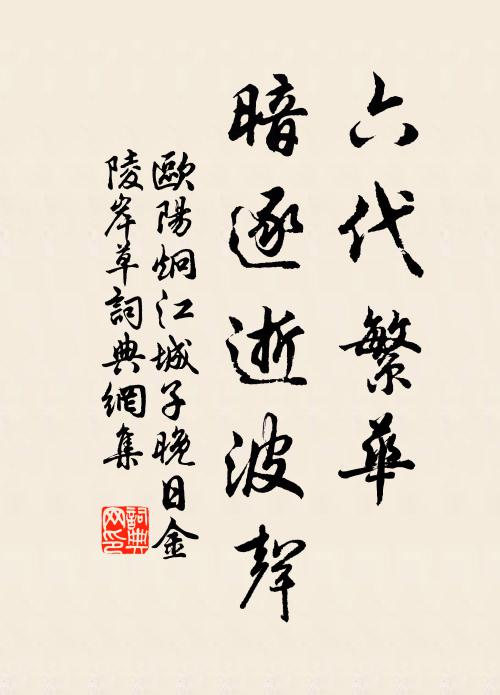 六代繁華
暗逐逝波聲
歐陽炯江城子晚日金
陵岸草詞典網集
詞典
网印